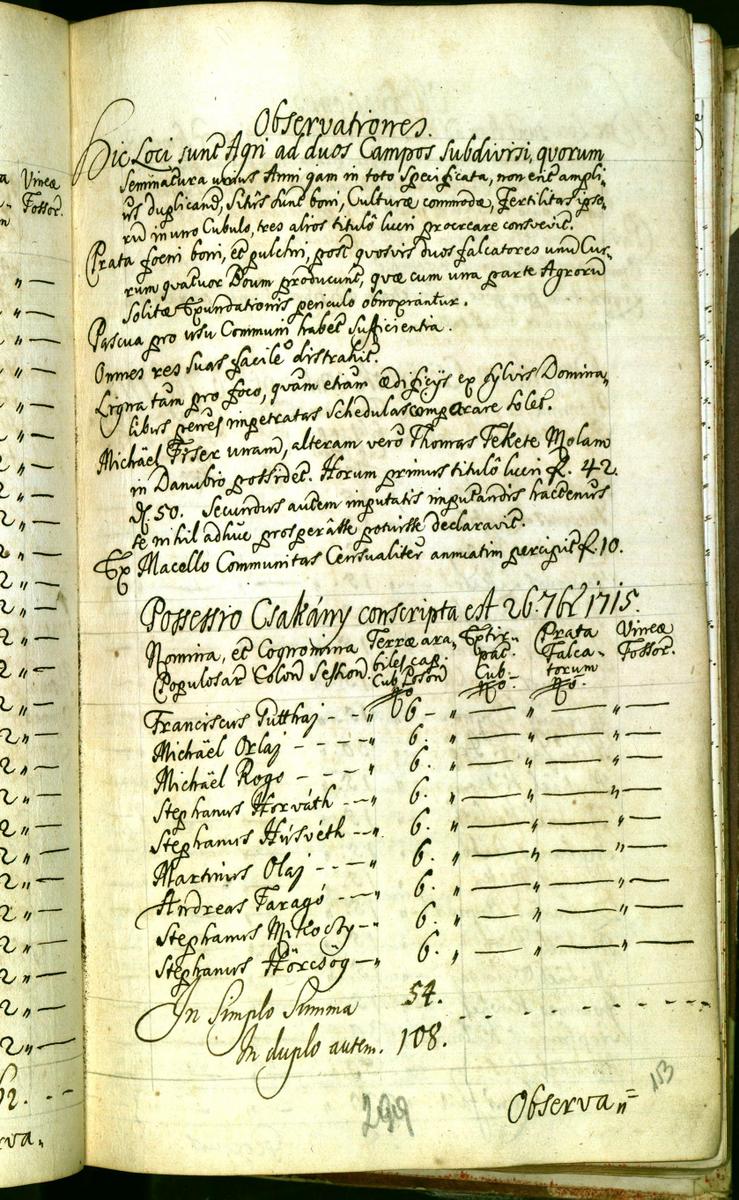 a Vineæ
Fossor.
Observationes.
Hic Loci sunt Agri ad duos Campos subdivisi, quorum
Seminatura unius Anni qam in toto specificata, non erit ampli-
us duplicand, Sitûs sunt boni, Culturæ commodæ, Fertilitas ipso-
rũ in uno Cubulo, tres alios titulô lucri procreare consvevit.
Prata foeni boni, et pulchri, post quosvis duos falcatores unũ Cur-
rum quatuor Boum producunt, quæ cum una parte Agrorũ
solitæ Exundationis periculo obnoxiantur.
Pascua pro usu Communi habet sufficientia.
Omnes res suas facile distrahit.
Ligna tam pro foco, quàm etiam ædificijs ex sylvis Domina-
libus penes impetratas schedulas comparare solet.
Michäel Fiser unam, alteram verò Thomas Fekete Molam
in Danubio possidet. Horum primus titulô lucri f. 42.
d. 50. Secundus autem imputatis imputandis hactenus
se nihil adhuc prosperâsse potuisse declaravit.
Ex Macello Communitas Censualiter annuatim percipit f. 10.
Possessio Csakány conscripta est 26. 7br 1715.
Nomina, et Cognomina Populosar Colon Session.
Terræ ara- biles cap. Cub Poson
Extir- pat. Cub-
Prata Falca- torum
Vineæ Fossor.
Franciscus Putthaj - - " 6 - " — " — " —
Michäel Orlaj - - - - " 6. " — " — " —
Michäel Rogo - - - - " 6. " — " — " —
Stephanus Horváth - - - " 6. " — " — " —
Stephanus Húsvéth - - - " 6. " — " — " —
Martinus Olaj - - - - " 6. " — " — " —
Andreas Faragó - - - - " 6. " — " — " —
Stephanus Mikoczy - - " 6. " — " — " —
Stephanus Hörcsög - - " 6. " — " — " —
In Simplo Summa 54.
In duplo autem. 108.
Observa=
299
153